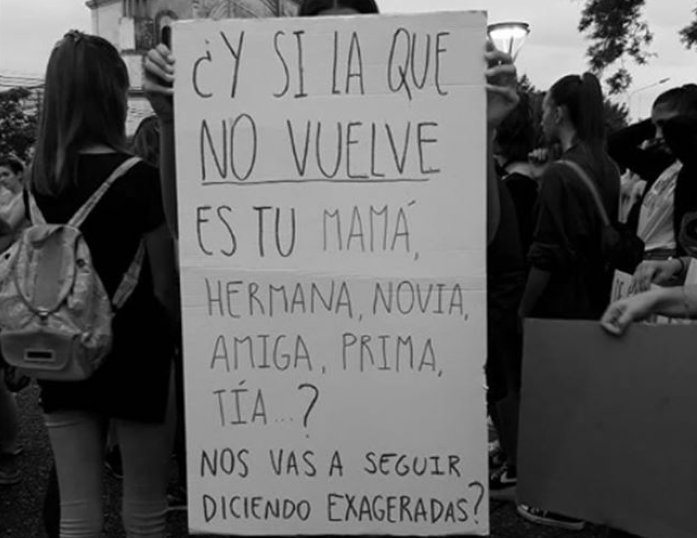 ¿Y SI LA QUE
NO VUELVE
ES TU MAMÁ,
HERMANA, NOVIA,
AMIGA, PRIMA,
TÍA...?
NOS VAS A SEGUIR
DICIENDO EXAGERADAS?